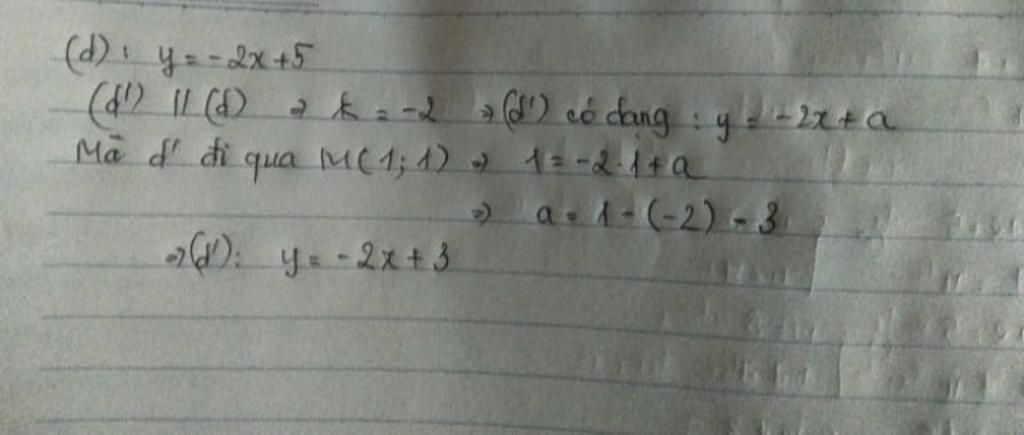 (d): y = -2x+5
(d') // (d) => k = -2 => (d') có dạng : y = -2x + a
Mà d' đi qua M(1; 1) => 1 = -2.1 + a
=> a = 1 - (-2) = 3
=> (d'): y = -2x + 3